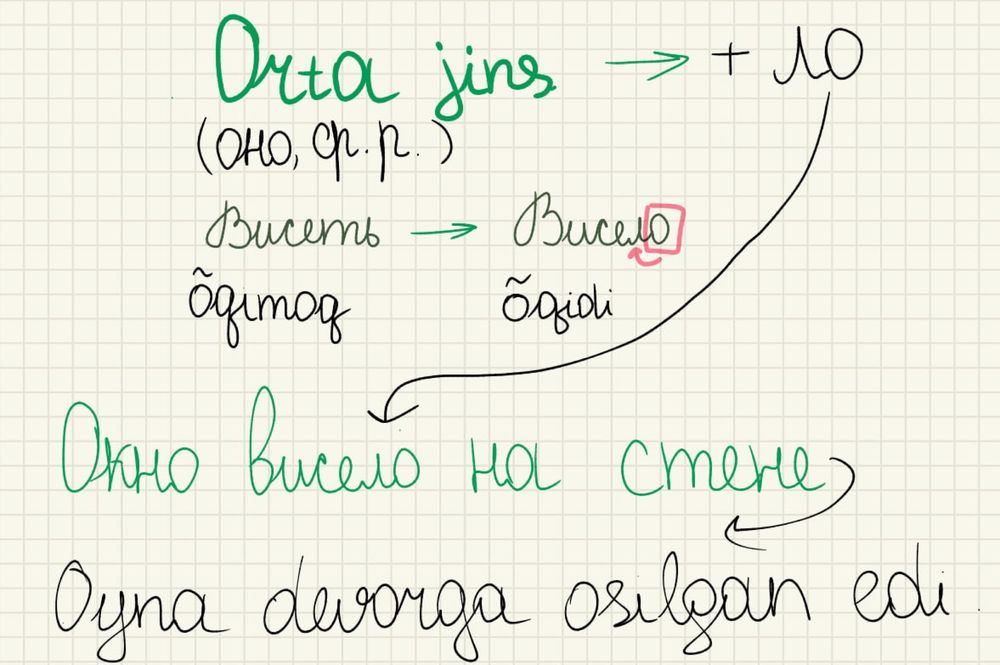 Orta jins → + ло
(оно, ср. р.)
Висеть → Висело
õqimoq õqidi
Окно висело на стене
Oyna devorga osilgan edi